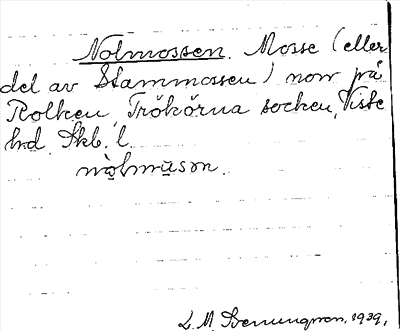 Nolmossen. Mosse (eller
del av Stammossen) norr på
Rolken, Trökörna socken, Viste
hd. Skb. l.
nòlmūsɔn.
L. M. Svenungsson, 1939.